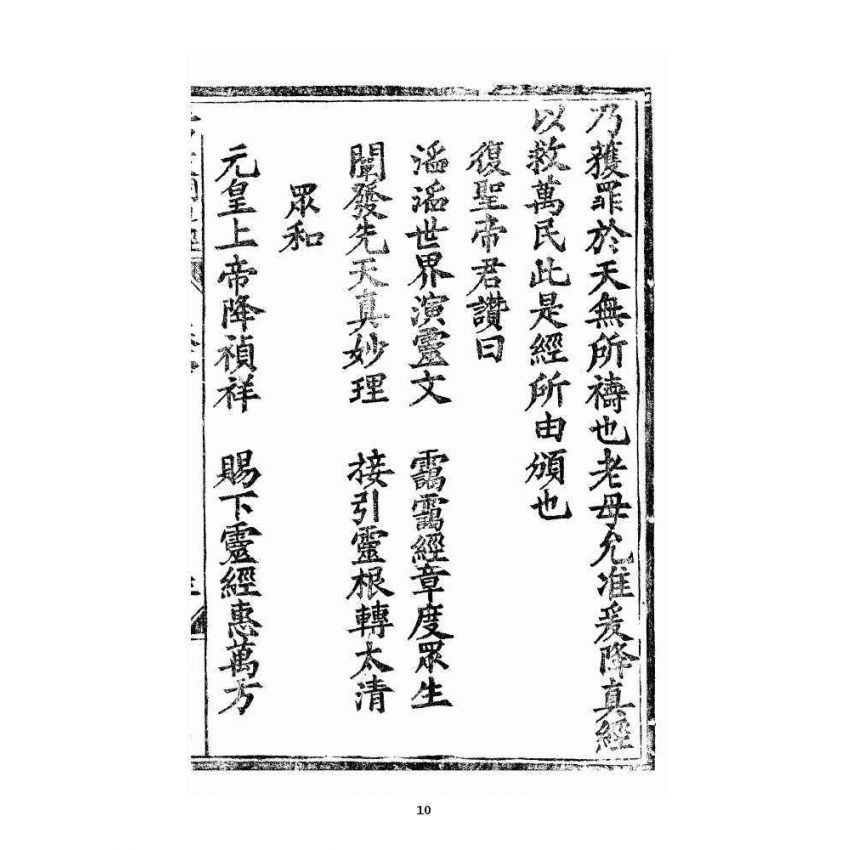 乃獲罪於天無所禱也老母允准爰降真經
以救萬民此是經所由頒也
復聖帝君讚曰
滔滔世界演靈文　靄靄經章度眾生
闡發先天真妙理　接引靈根轉太清
眾和
元皇上帝降禎祥　賜下靈經惠萬方
10